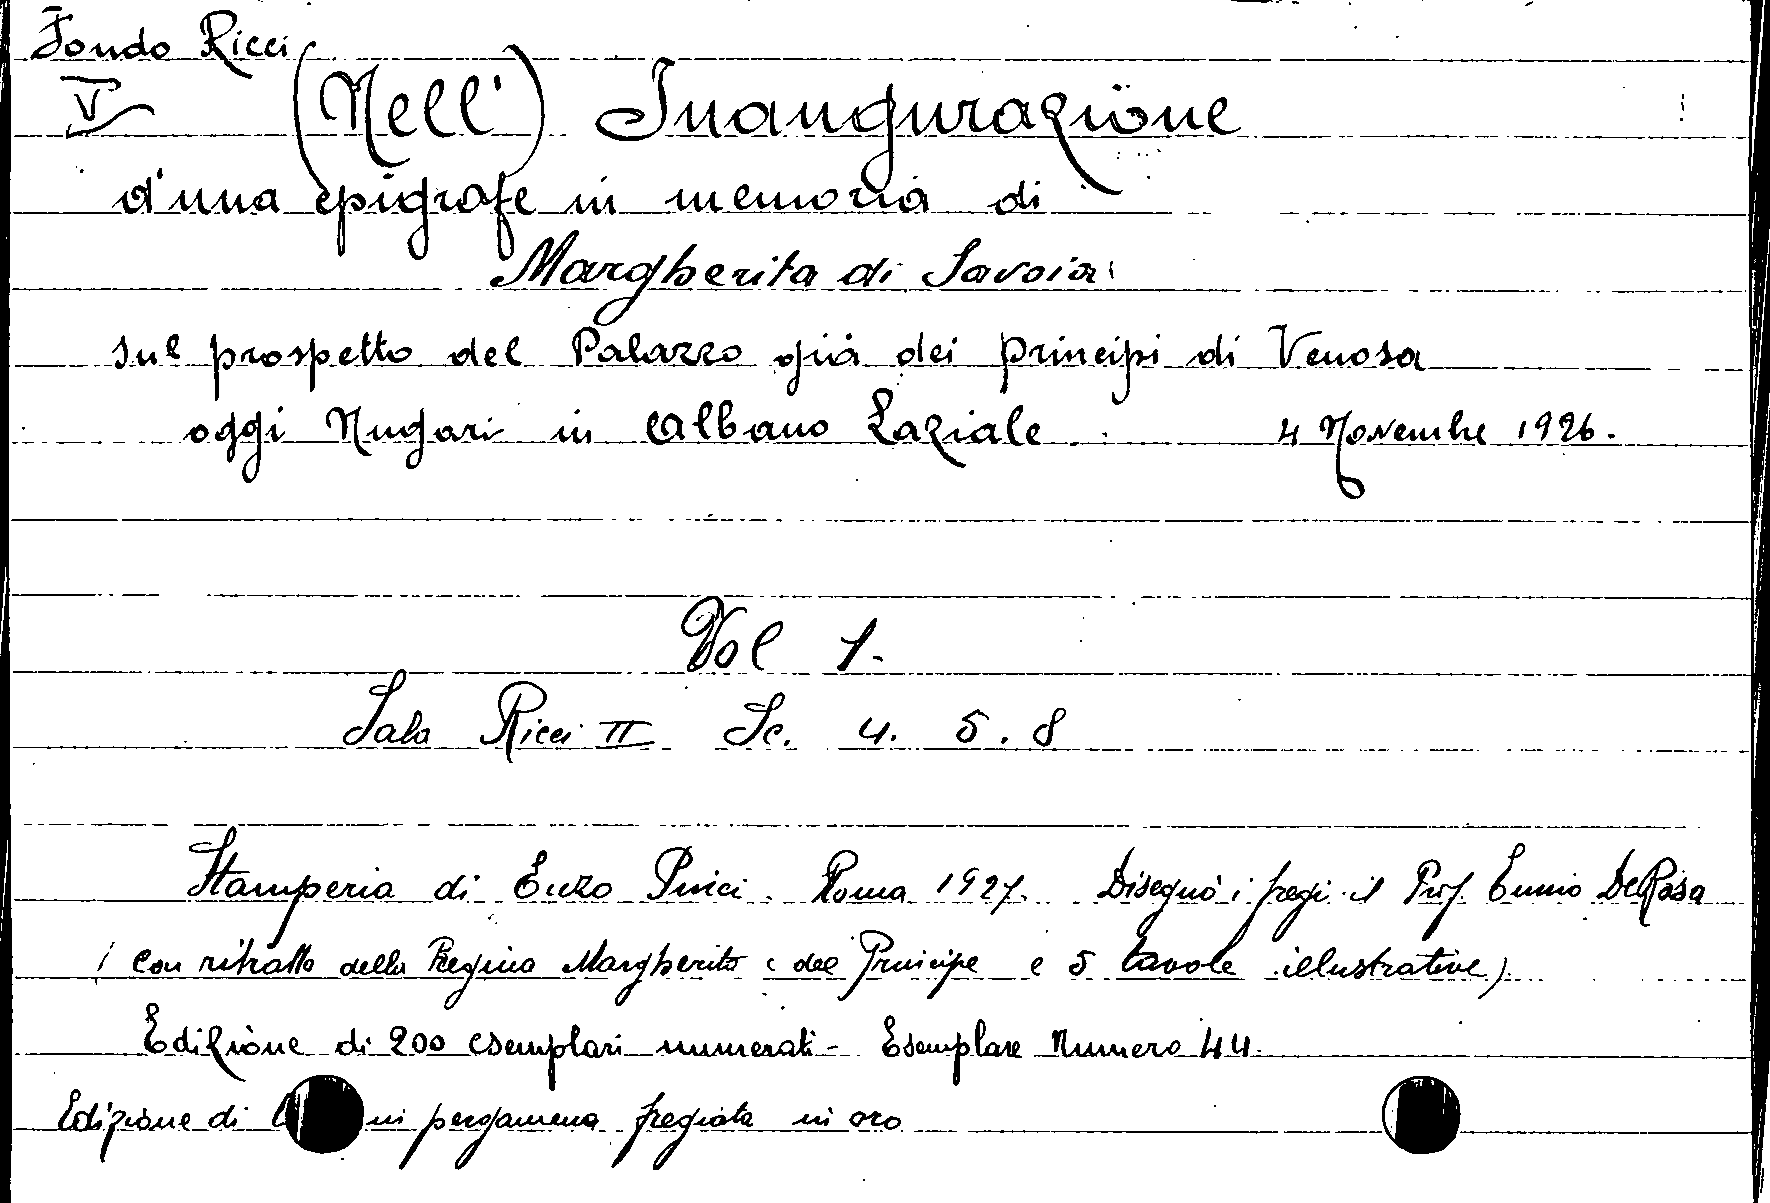 Fondo Ricci
V
(Nell') Inaugurazione
d'una epigrafe in memoria di
Margherita di Savoia
sul prospetto del Palazzo già dei principi di Venosa
oggi Nugari in Albano Laziale 4 Novembre 1926.
Vol 1.
Sala Ricci II Sc. 4. 5. 8
Stamperia di Enzo Pinci. Roma 1927. Disegnò i fregi il Prof. Ennio De Rosa
(con ritratto della Regina Margherita e del Principe e 5 tavole illustrative)
Edizione di 200 esemplari numerati - Esemplare Numero 44.
Edizione di in pergamena fregiata in oro